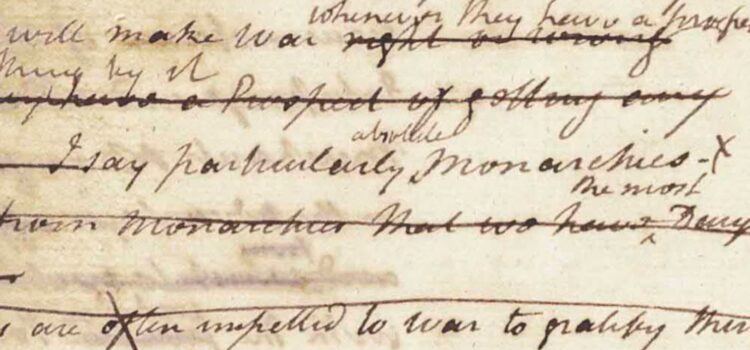 whenever they have a prospect
will make war right or wrong
thing by it
have a Prospect of getting any
absolute
I say particularly, Monarchies - x
the most
from Monarchies that we have Dang
are often impelled to war to gratify their